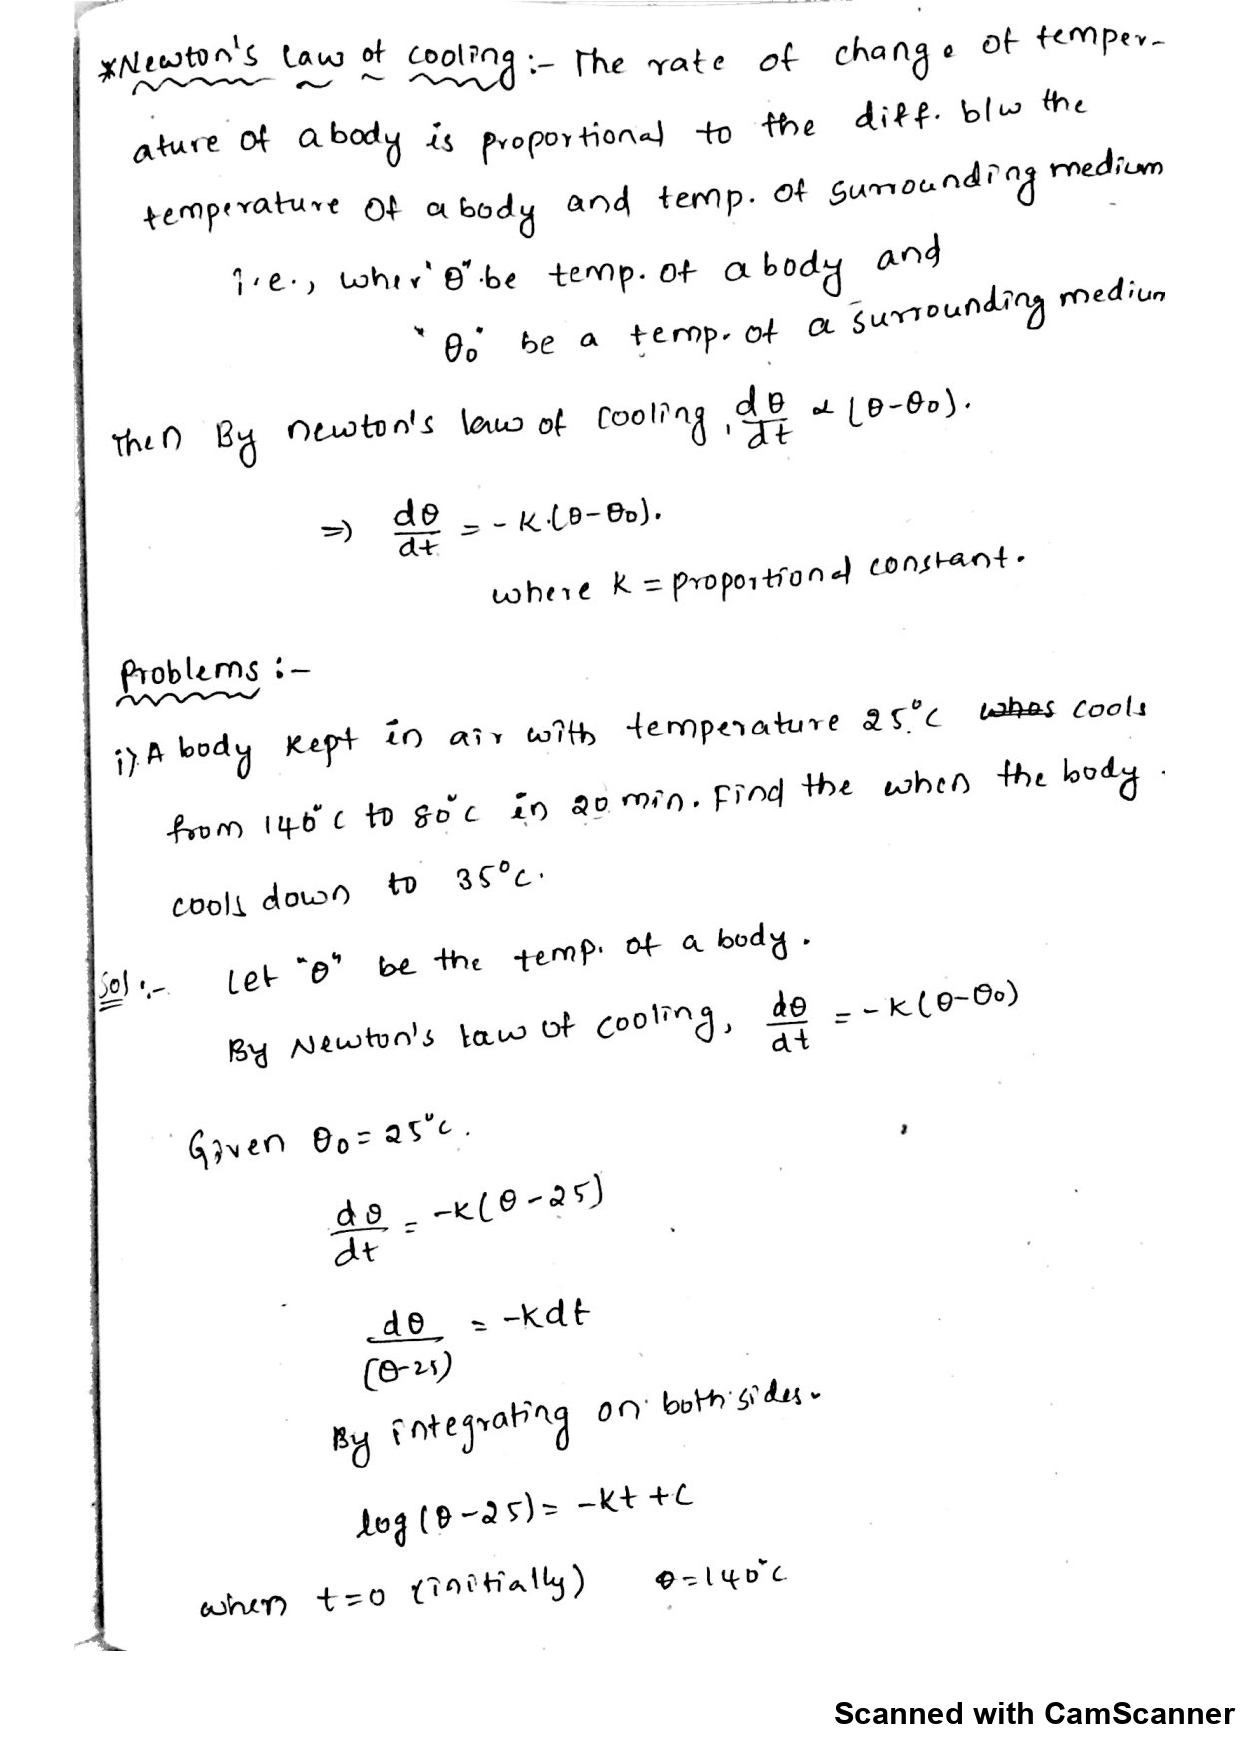 *Newton's law of cooling :- The rate of change of temper-
ature of a body is proportional to the diff. b/w the
temperature of a body and temp. of surrounding medium
i.e., wher "θ" be temp. of a body and
"θ₀" be a temp. of a surrounding medium
Then By newton's law of cooling, dθ/dt ∝ (θ-θ₀).
⇒ dθ/dt = -k.(θ-θ₀).
where k = proportional constant.
Problems :-
i) A body kept in air with temperature 25°C cools
from 140°C to 80°C in 20 min. Find the when the body
cools down to 35°C.
Sol :- Let "θ" be the temp. of a body.
By Newton's law of cooling, dθ/dt = -k(θ-θ₀)
Given θ₀ = 25°C.
dθ/dt = -k(θ-25)
dθ/(θ-25) = -kdt
By integrating on both sides.
log(θ-25) = -kt + c
when t=0 (initially) θ=140°C
Scanned with CamScanner